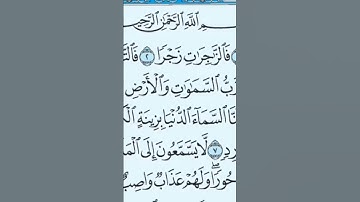 ـمِ ٱللَّهِ ٱلرَّحْمَٰنِ ٱلرَّحِيمِ
فَٱلزَّٰجِرَٰتِ زَجْرًا ٢ فَٱلتَّـ
رَبُّ ٱلسَّمَٰوَٰتِ وَٱلْأَرْضِ
نَّا ٱلسَّمَآءَ ٱلدُّنْيَا بِزِينَةٍ ٱلْكَـ
رِدٍ ٧ لَّا يَسَّمَّعُونَ إِلَى ٱلْمَـ
حُورًا ۖ وَلَهُمْ عَذَابٌ وَاصِبٌ